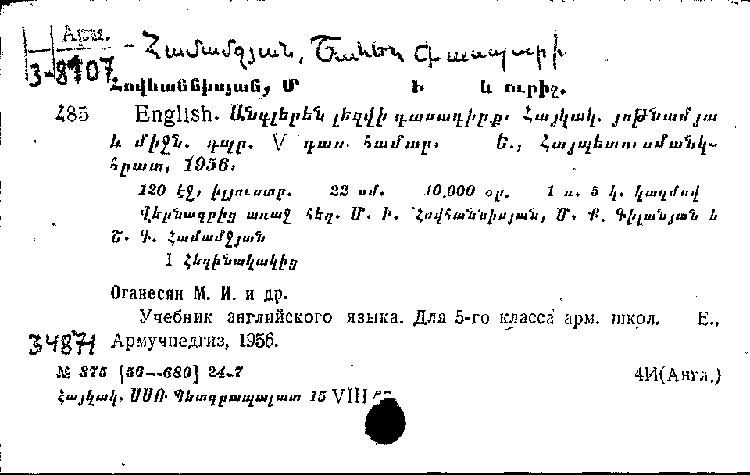 Арм.
3-8107
Համամջյան, Շահեն Գասպարի
Հովհաննիսյան, Մ Ի և ուրիշ.
Հ85 English. Անգլերեն լեզվի դասագիրք. Հայկակ. յոթնամյա
և միջն. դպր. V դաս. համար. Ե., Հայպետուսմանկ-
հրատ, 1956.
120 էջ, իլյուստր. 22 սմ. 10,000 օր. 1 ռ. 5 կ. կազմով
Վերնագրից առաջ հեղ. Մ. Ի. Հովհաննիսյան, Մ. Ք. Գիլանյան և
Շ. Գ. Համամջյան
I Հեղինակակից
Оганесян М. И. и др.
Учебник английского языка. Для 5-го класса арм. школ. Е.,
34871 Армучпедгиз, 1956.
№ 375 [56—680] 24-7
4И(Англ.)
Հայկակ. ՍՍՌ Պետգրապալատ 15 VIII